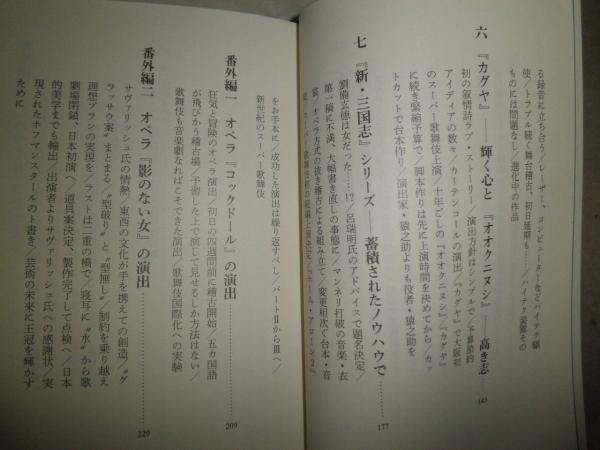 る録音に立ち合う／レーザー、コンピューターなどハイテク駆
使／トラブル続く舞台稽古、初日延期も――／ハイテク装置その
ものには問題なし、進化中の作品
六 『カグヤ』――輝く心と 『オオクニヌシ』――高き志――
145
初の叙情詩ラブ・ストーリー／演出方針はシンプルで／予算節約
アイディアの数々／カーテンコールの演出／『カグヤ』で大阪初
のスーパー歌舞伎上演／十年ごしの『オオクニヌシ』／『カグヤ』
に続き緊縮予算で／脚本作りは先に上演時間を決めてから／カッ
トカットで台本作り／演出家・猿之助よりも役者・猿之助を
七 『新・三国志』シリーズ――蓄積されたノウハウで
177
劉備玄徳は女だった……!?／呂瑞明氏のアドバイスで題名決定／
第一稿に不満、大幅書き直しの事態に／マンネリ打破の音楽・衣
裳／オペラ方式の抜き稽古による組み立て／変更相次ぐ台本・音
をお手本に／成功した演出は繰り返すべし／パートⅡからⅢへ／
新世紀のスーパー歌舞伎
番外編一 オペラ『コックドール』の演出
209
狂気と冒険のオペラ演出／初日の四週間前に稽古開始／五カ国語
が飛びかう稽古場／予測した上で演じて見せるしか方法はない／
歌舞伎も音楽劇なればこそできた演出／歌舞伎国際化への実験
番外編二 オペラ『影のない女』の演出
229
サヴァリッシュ氏の情熱／東西の文化が手を携えての創造／“グ
ラッサウ案”まとまる／“型破り”と“型無し”／制約を乗り越え
理想プランの実現を／ラストは二重の橋で／寝耳に“水”から歌
劇場閉鎖、日本初演へ／道具案決定、製作完了して点検へ／日本
的美学までも輸出／出演者よりサヴァリッシュ氏への感謝状／実
現されたホフマンスタールのト書き／芸術の未来に王冠を輝かす
ために